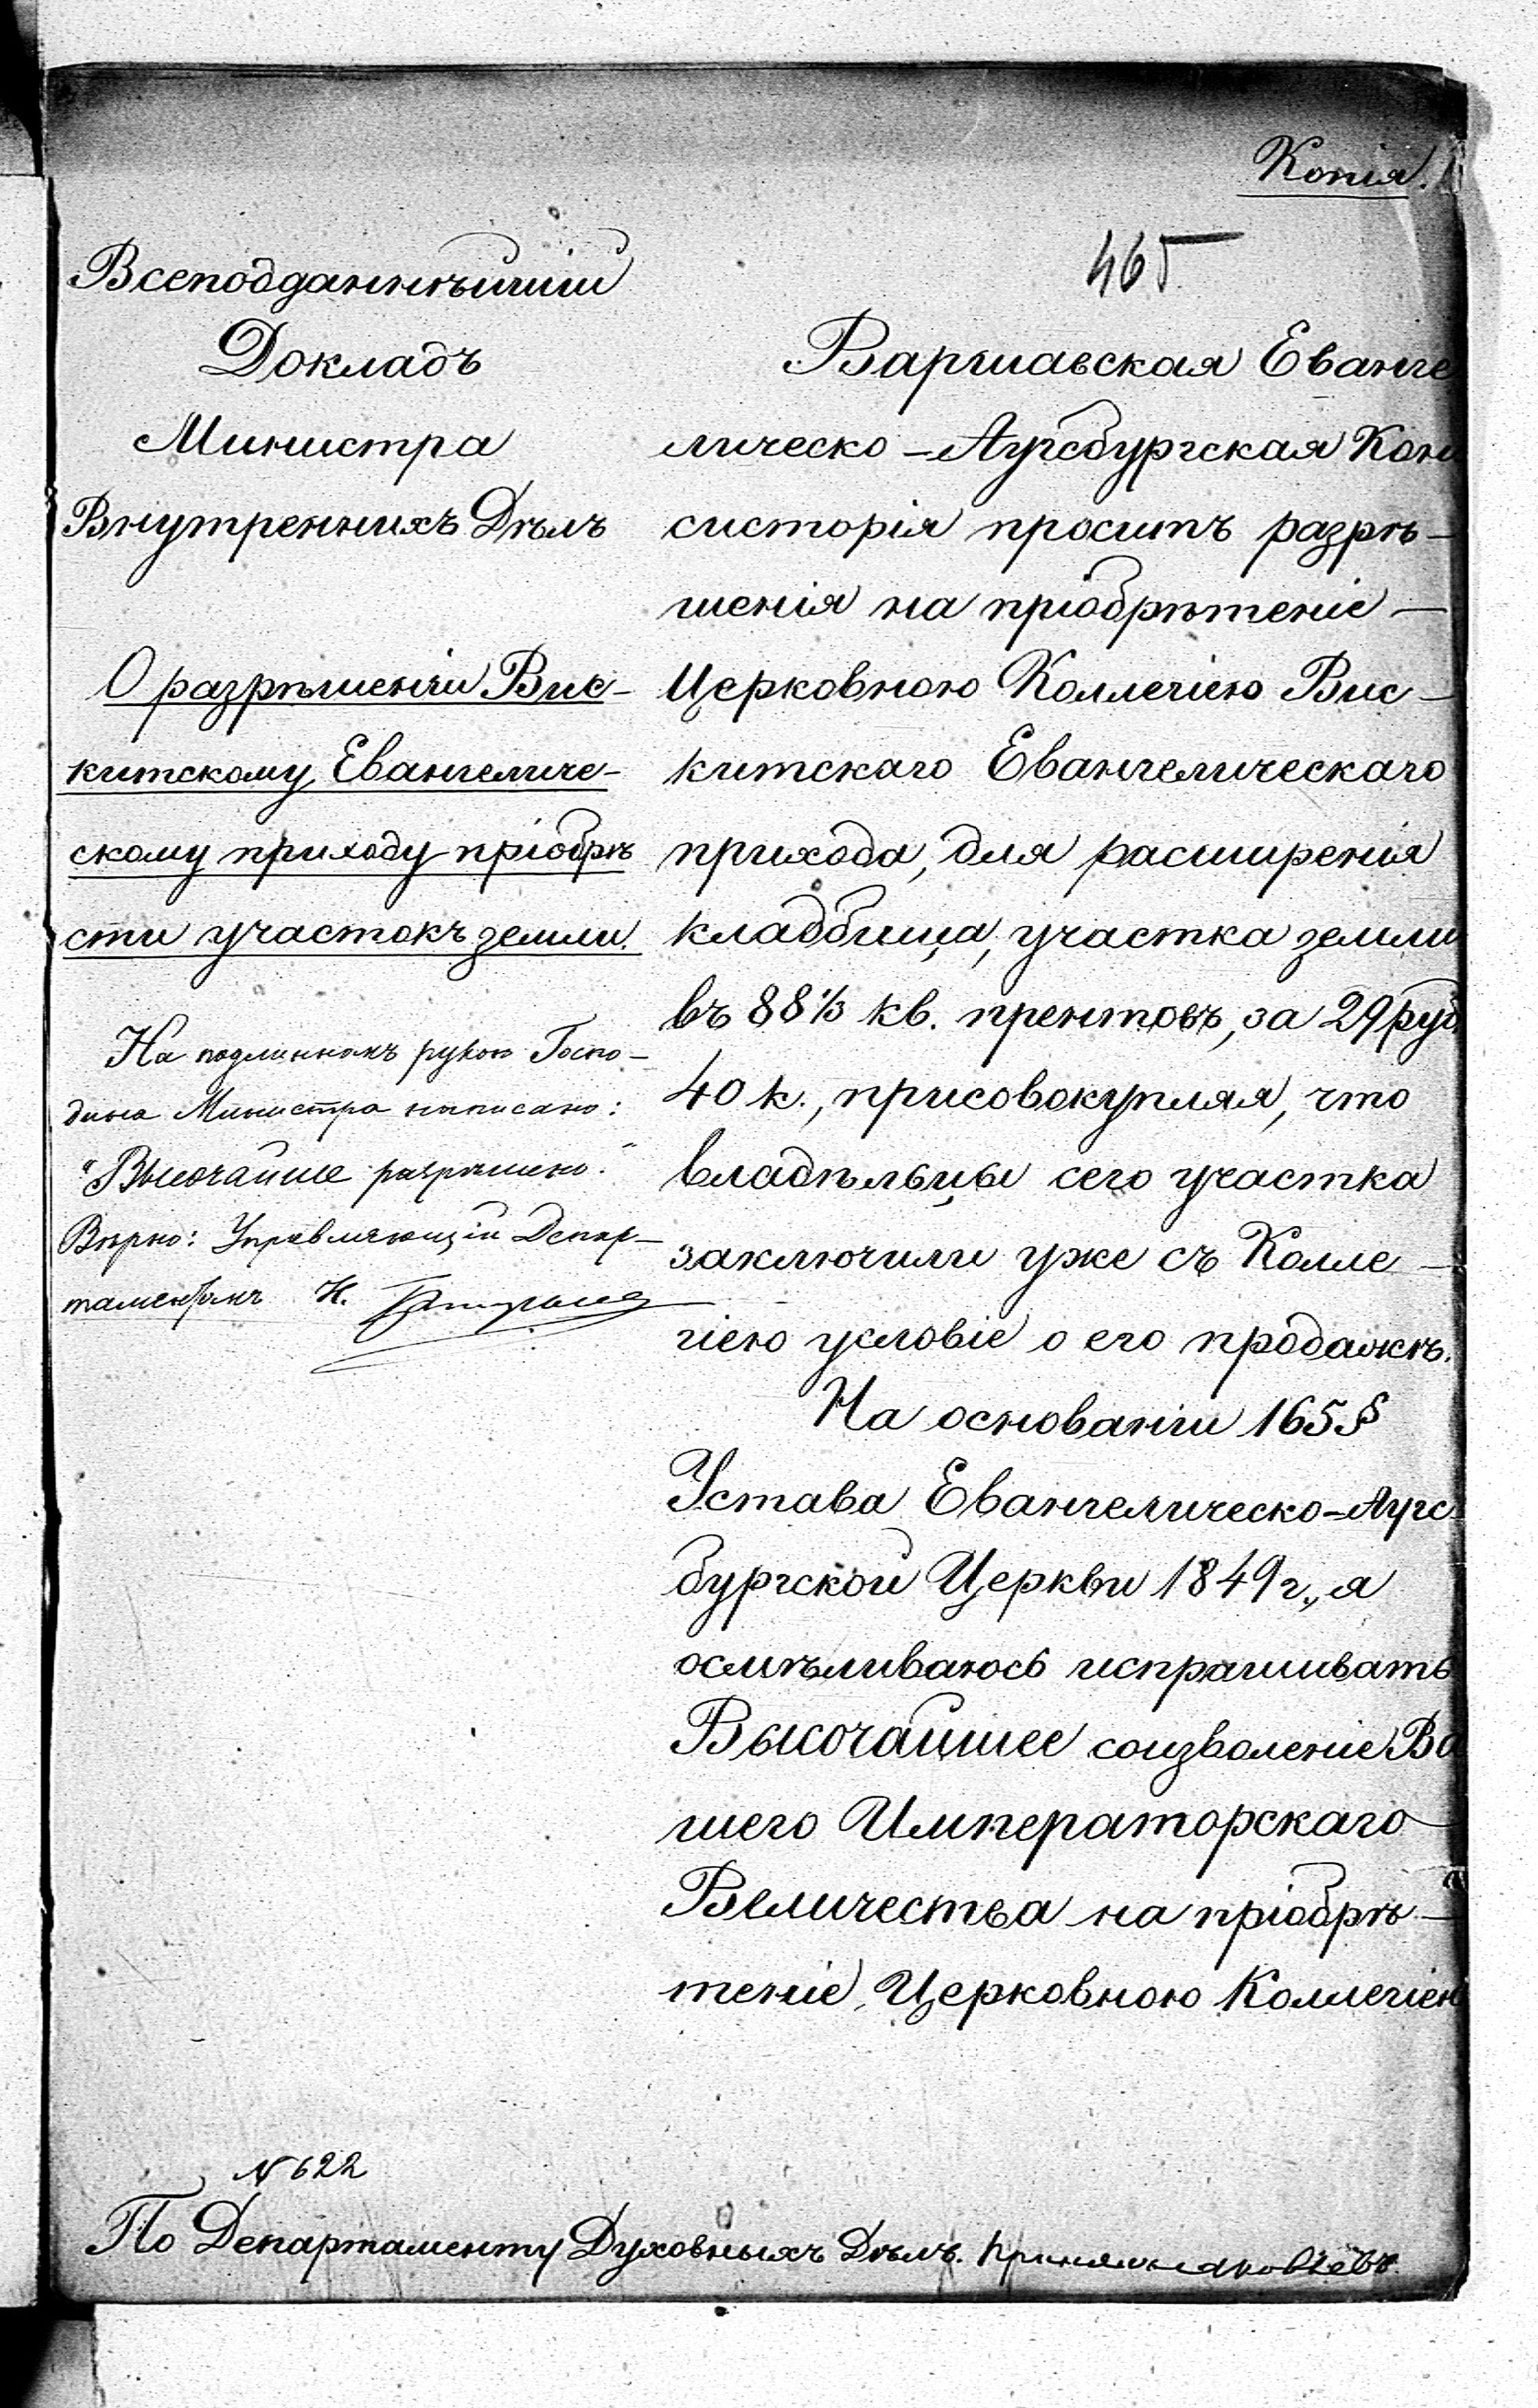 Копія.
465
Всеподданнѣйшій
Докладъ
Министра
Внутреннихъ Дѣлъ
О разрѣшеніи Вис-
китскому Евангеличе-
скому приходу пріобрѣ
сти участокъ земли.
На подлинномъ рукою Госпо-
дина Министра написано:
"Высочайше разрѣшено."
Вѣрно: Управляющій Депар-
таментомъ Н.
Варшавская Еванге
лическо-Аугсбургская Кон
систорія проситъ разрѣ-
шенія на пріобрѣтеніе -
Церковною Коллегіею Вис-
китскаго Евангелическаго
прихода, для расширенія
кладбища, участка земли
въ 88 1/3 кв. прентовъ, за 29 руб.
40 к., присовокупляя, что
владѣльцы сего участка
заключили уже съ Колле-
гіею условіе о его продажѣ.
На основаніи 165 §
Устава Евангелическо-Аугс
бургской Церкви 1849 г., я
осмѣливаюсь испрашивать
Высочайшее соизволеніе Ва
шего Императорскаго
Величества на пріобрѣ-
теніе Церковною Коллегіею
№ 622
По Департаменту Духовныхъ Дѣлъ.